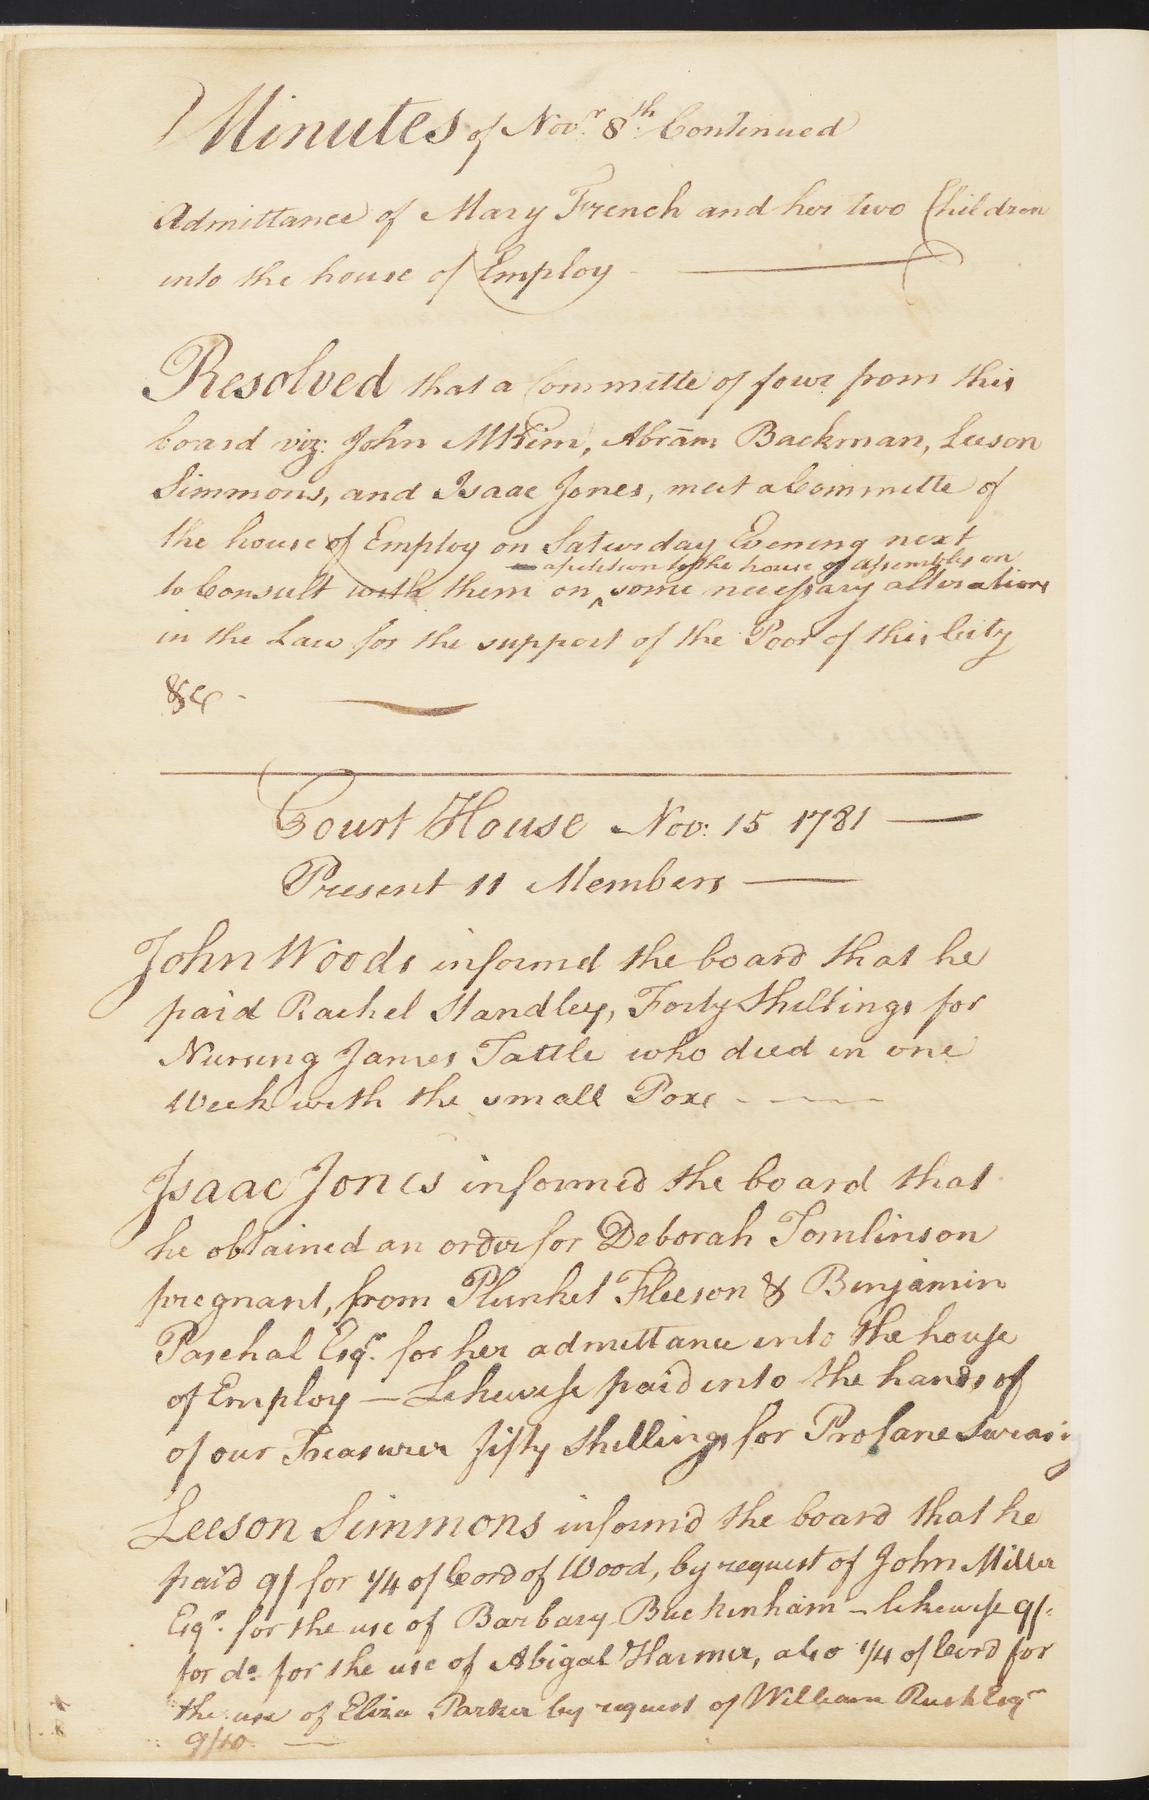 Minutes of Novr. 8th. Continued
Admittance of Mary French and her two Children
into the house of Employ
Resolved that a Committe of four from this
board viz: John MKim, Abrām Backman, Leeson
Simmons, and Isaac Jones, meet a Committe of
the house of Employ on Saturday Evening next
a petition to the house of assembly on
to Consult with them on ^ some necessary alterations
in the Law for the support of the Poor of this City
&c
Court House Nov: 15 1781
Present 11 Members
John Woods informd the board that he
paid Rachel Standley, Forty Shillings for
Nursing James Tattle who died in one
Week with the small Pox
Isaac Jones informed the board that
he obtained an order for Deborah Tomlinson
pregnant, from Plunket Fleeson & Benjamin
Paschal Esqr. for her admittance into the house
of Employ — Likewise paid into the hands of
of our Treasurer fifty Shillings for Profane Swearing
Leeson Simmons informd the board that he
paid 9/ for 1/4 of Cord of Wood, by request of John Miller
Esqr. for the use of Barbary Buckinham – likewise 9/:
for do. for the use of Abigal Harmer, also 1/4 of Cord for
the use of Eliza Parker by request of William Rush Esqr
9/10